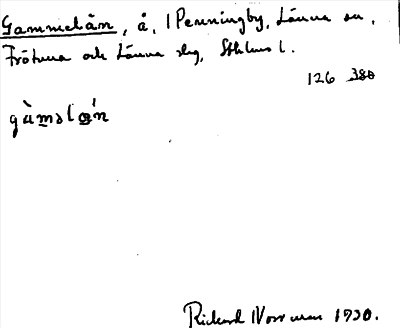 Gammelån, å, Penningby, Länna sn,
Frötuna och Länna slg, Sthlms l.
126 380
gàməlån
Rickard Norrman 1930.